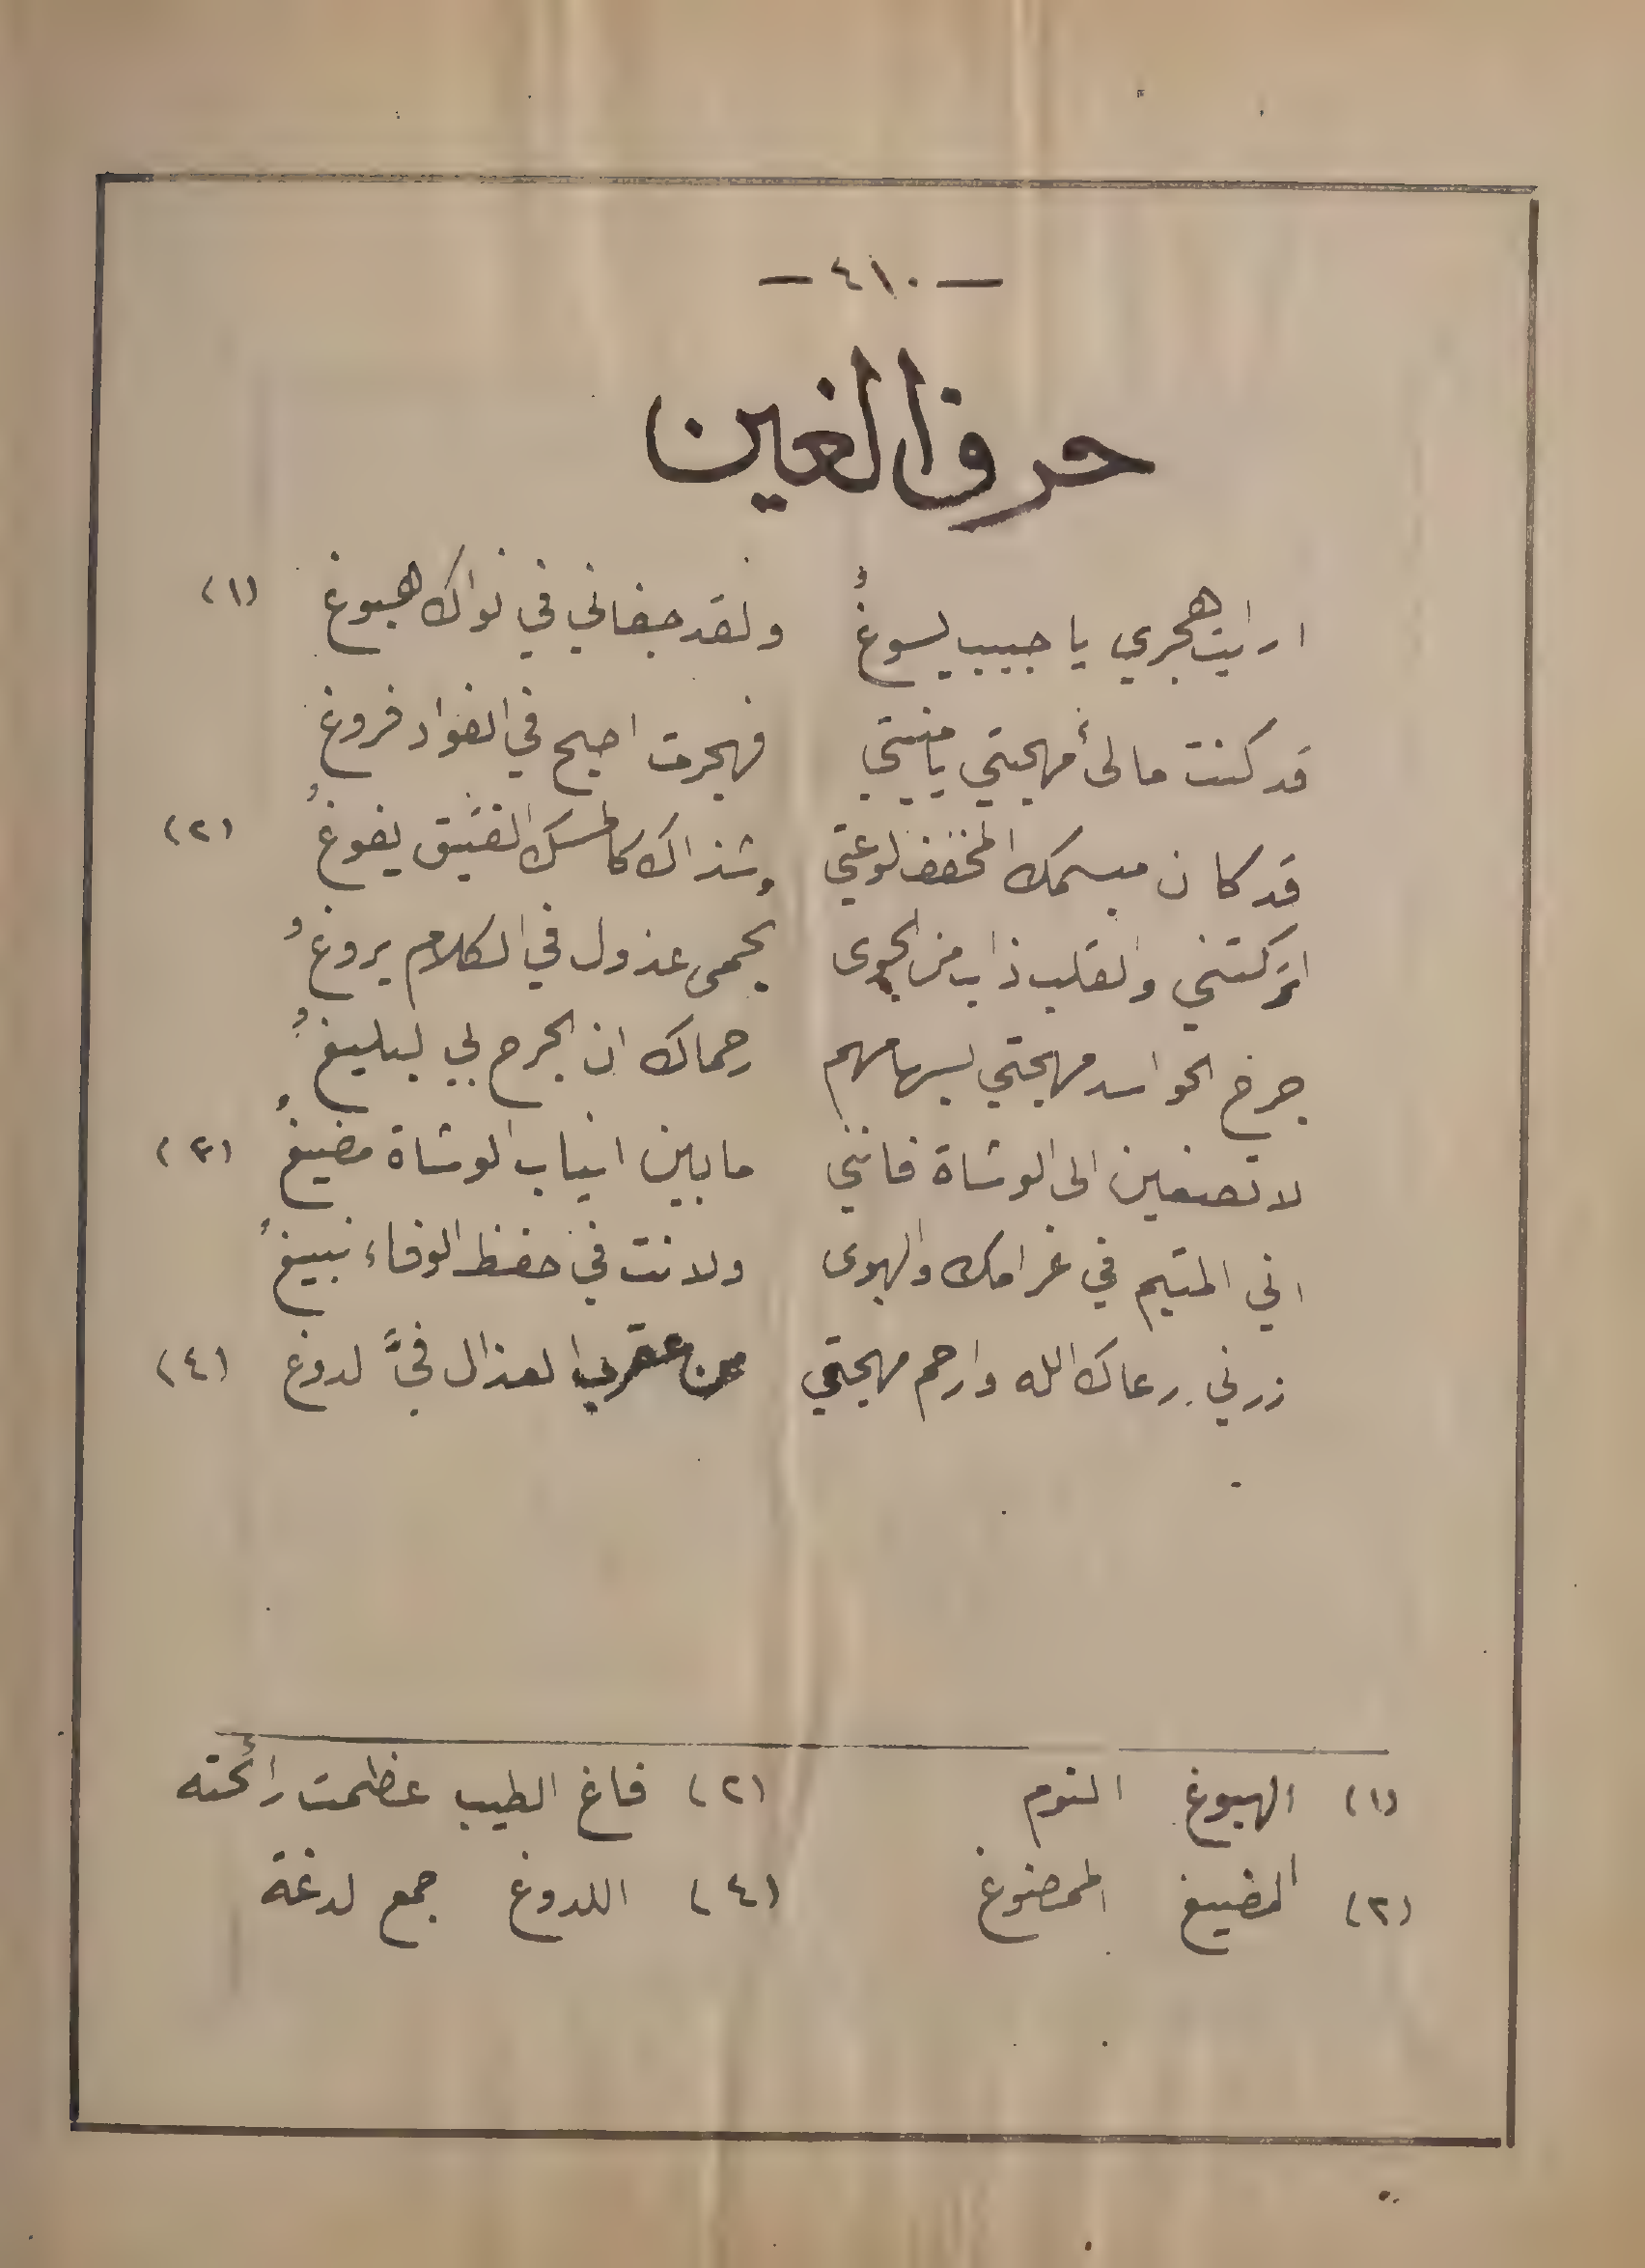 — ٤١٠ —
حرف الغين
ارايت هجري يا حبيب يسوغُ ولقد جفاني في نواك هبوغ (١)
قد كنت مالئ مهجتي يا منيتي فهجرت اصبح في الفواد فروغ
قد كان مبسمك المخفف لوعتي وشذاك كالمسك الفتيق يفوغُ (٢)
اتركتني والقلب ذاب من الجوى بحمى عذول في الكلام يروغُ
جرح الحواسد مهجتي بسهامهم رحماك ان الجرح بي لبليغُ
لا تصغين الى الوشاة فانني ما بين انياب الوشاة مضيغُ (٣)
اني المتيم في غرامك والهوى ولانت في حفظ الوفاء نبيغُ
زرني رعاك الله وارحم مهجتي من عقرب العذال فيَّ لدوغ (٤)
(١) الهبوغ النوم (٢) فاغ الطيب عظمت رائحته
(٣) المضيغ الممضوغ (٤) اللدوغ جمع لدغة